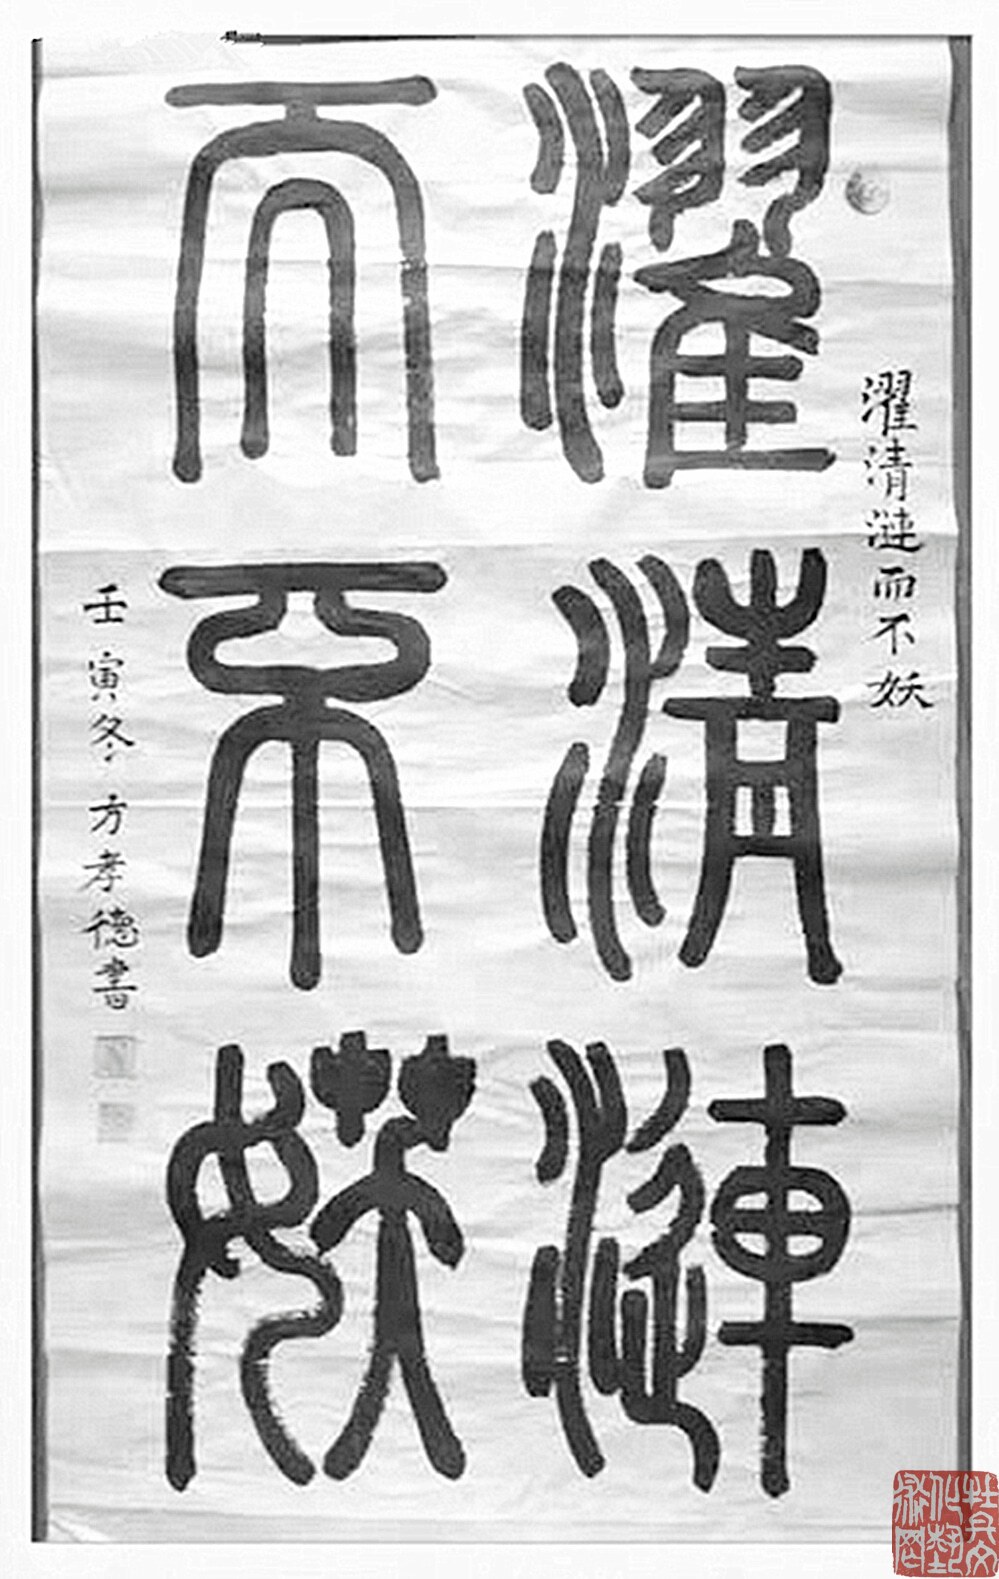 濯清涟而不妖
濯清漣
而不妖
壬寅冬方孝德書